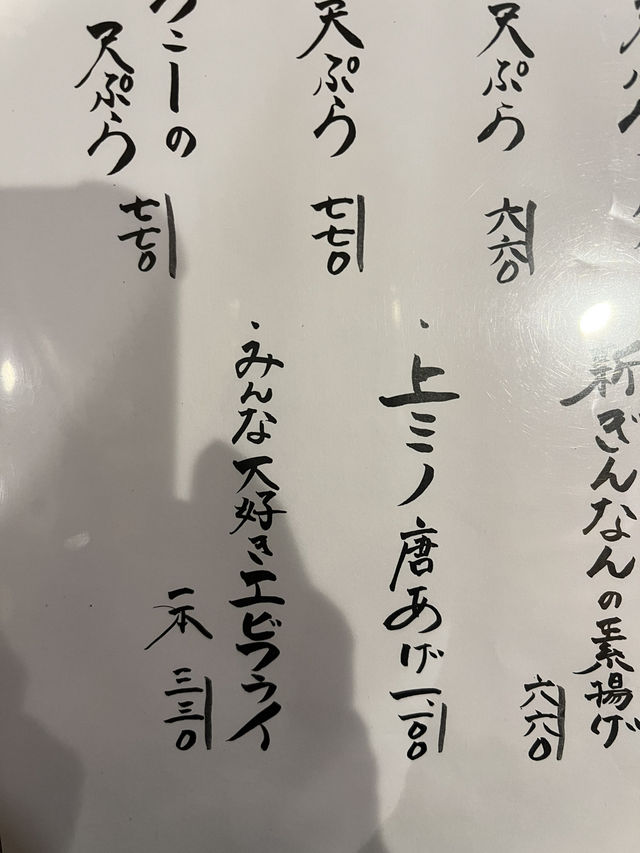 天ぷら
六六〇
天ぷら
七七〇
ニーの
天ぷら
七七〇
新ぎんなんの素揚げ
六六〇
・上ミノ唐あげ
一、一〇〇
・みんな大好きエビフライ
一本 三三〇